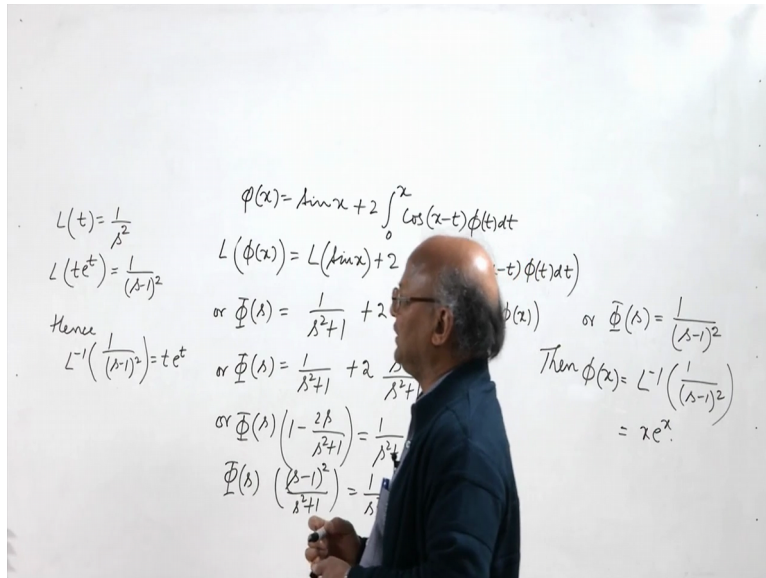 L(t)=1/s²
L(te^t)=1/(s-1)²
Hence
L⁻¹(1/(s-1)²)=te^t
φ(x)=sinx+2∫₀ˣcos(x-t)φ(t)dt
L(φ(x))=L(sinx)+2 -t)φ(t)dt)
or Φ(s)=1/(s²+1) +2 φ(x))
or Φ(s)=1/(s²+1) +2 s/(s²+1
or Φ(s)(1-2s/(s²+1))=1/s²+
Φ(s)((s-1)²/(s²+1))=1/s
or Φ(s)=1/(s-1)²
Then φ(x)=L⁻¹(1/(s-1)²)
=xe^x.